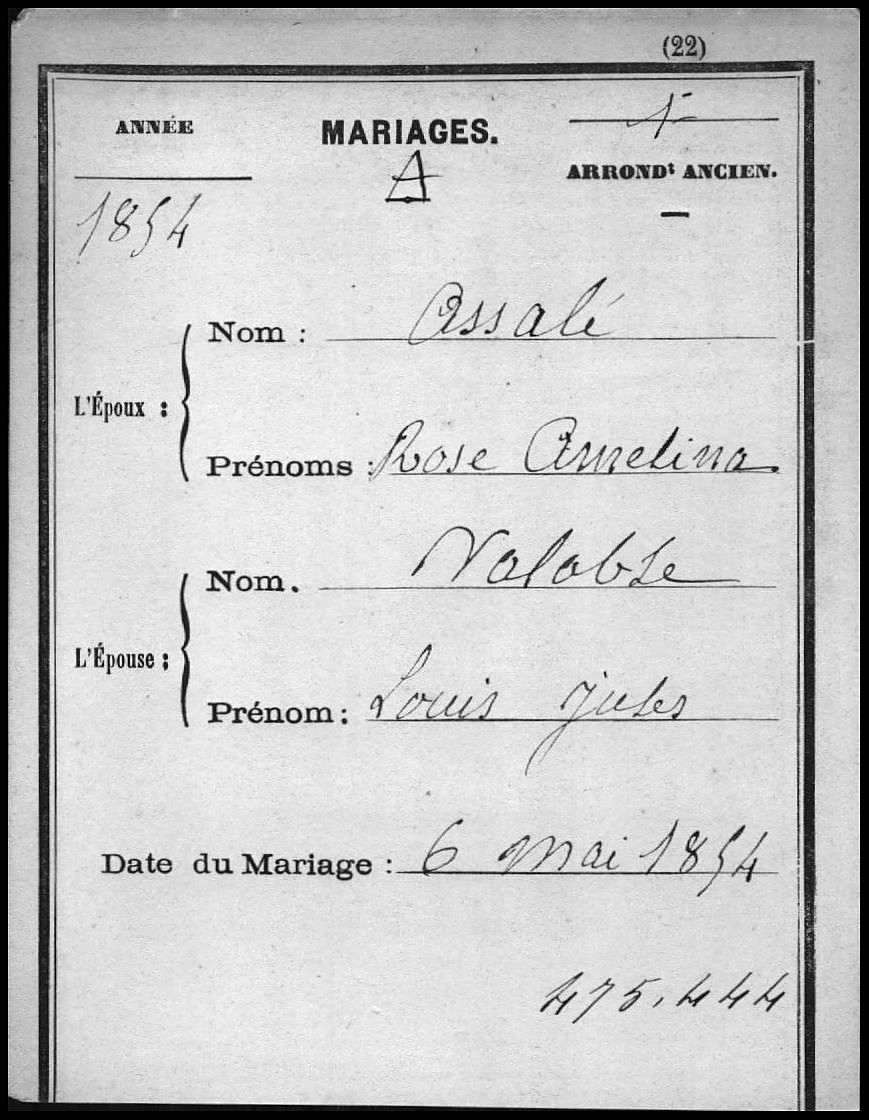 (22)
ANNÉE
MARIAGES.
A
ARRONDt ANCIEN.
1854
L'Époux :
Nom : Assalé
Prénoms : Rose Amelina.
L'Épouse :
Nom. Valable
Prénom : Louis Jules
Date du Mariage : 6 Mai 1854
475.444